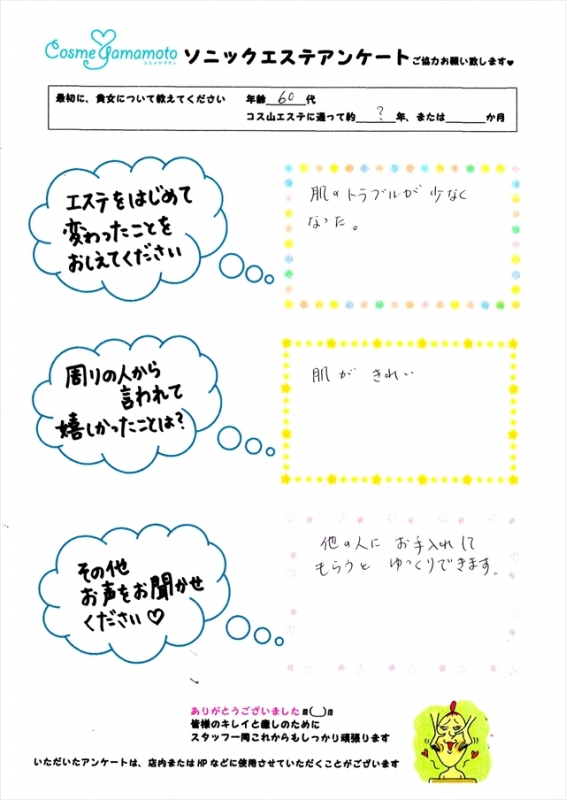 Cosme Yamamoto
コスメヤマモト
ソニックエステアンケートご協力お願い致します♥
最初に、貴女について教えてください 年齢 60 代
コス山エステに通って約 ? 年、または か月
エステをはじめて
変わったことを
おしえてください
肌のトラブルが少なく
なった。
周りの人から
言われて
嬉しかったことは?
肌が きれい
その他
お声をお聞かせ
ください♡
他の人に お手入れして
もらうと ゆっくりできます。
ありがとうございました
皆様のキレイと癒しのために
スタッフ一同これからもしっかり頑張ります
いただいたアンケートは、店内またはHPなどに使用させていただくことがございます